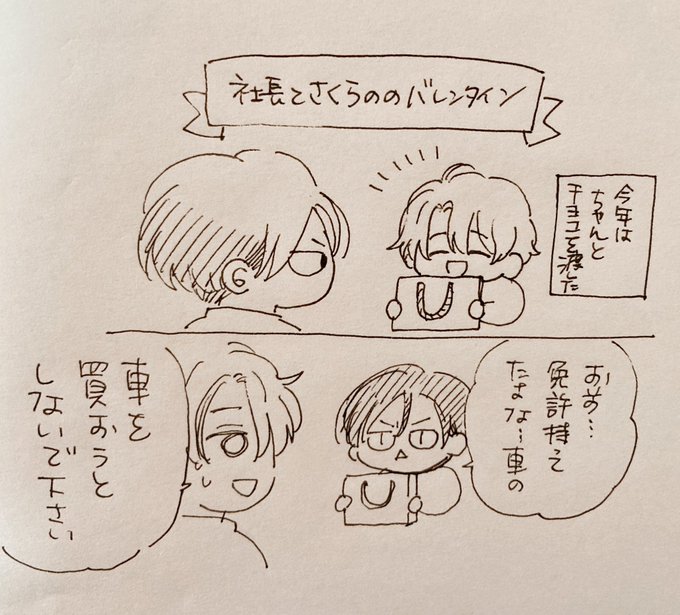 社長とさくらののバレンタイン
今年は
ちゃんと
チョコを渡した
お前…
免許持って
たよな…車の
車を
買おうと
しないで下さい